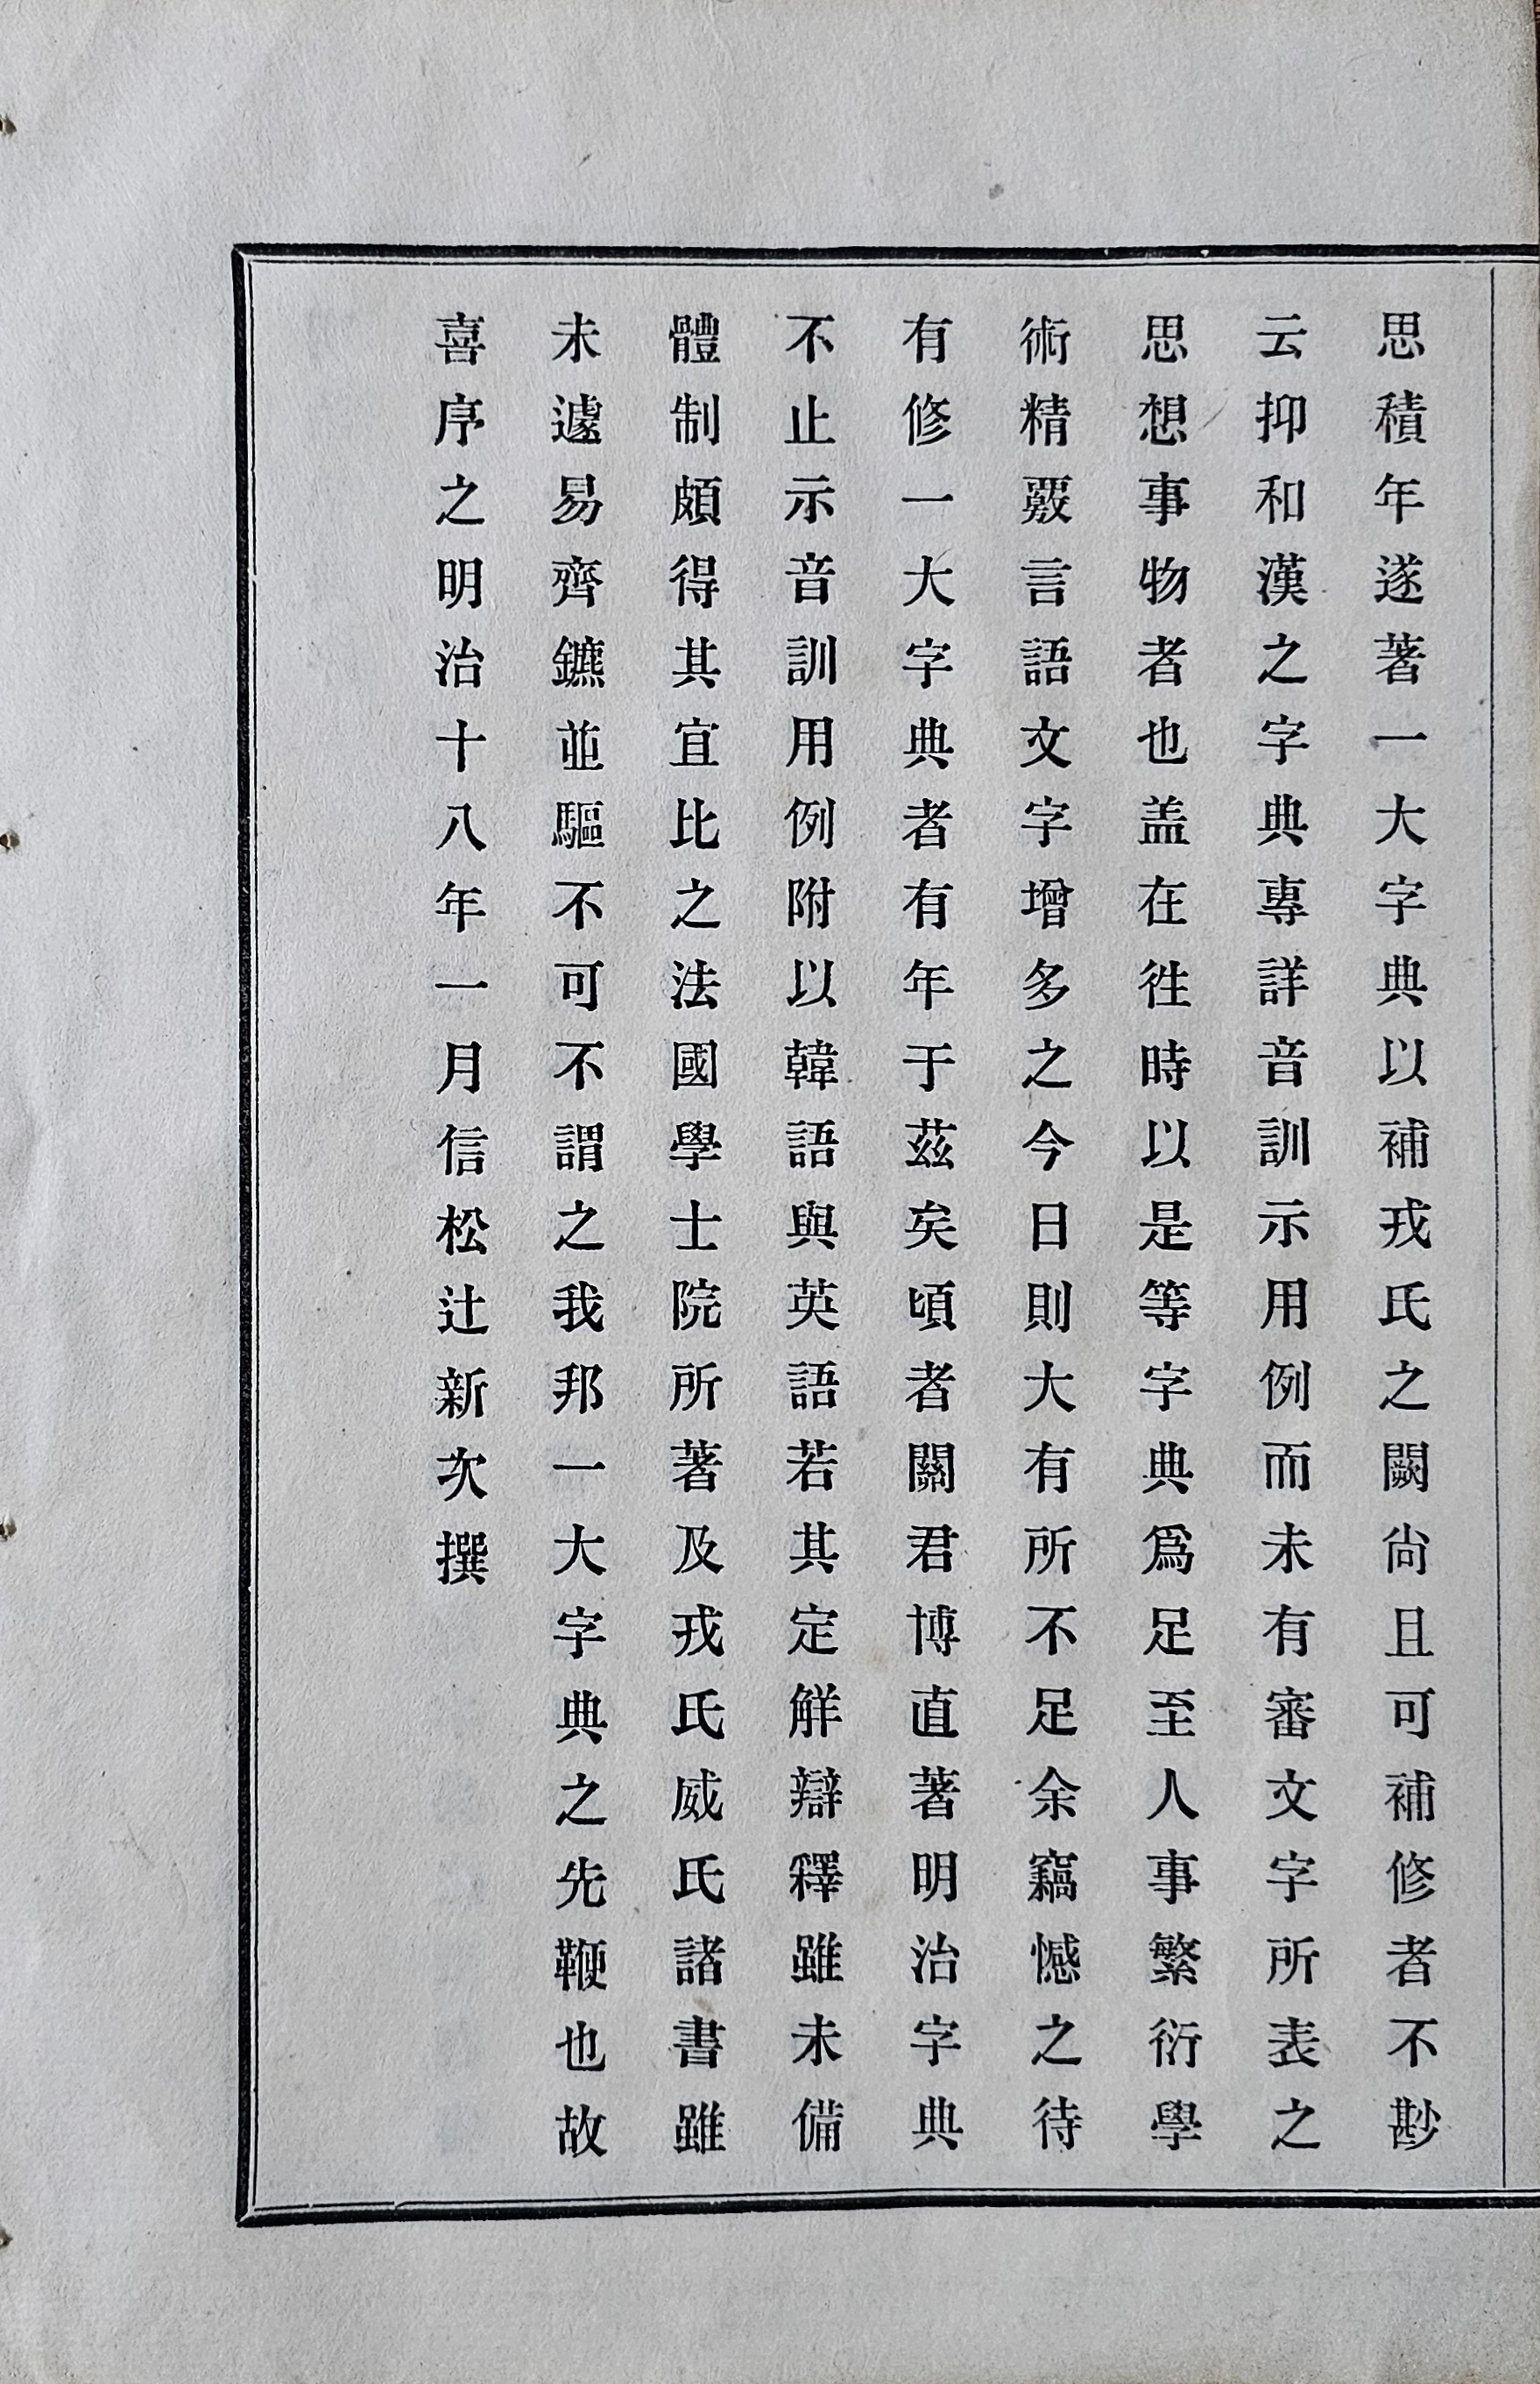 思積年遂著一大字典以補戎氏之闕尙且可補修者不尠
云抑和漢之字典專詳音訓示用例而未有審文字所表之
思想事物者也盖在徃時以是等字典爲足至人事繁衍學
術精覈言語文字增多之今日則大有所不足余竊憾之待
有修一大字典者有年于茲矣頃者關君博直著明治字典
不止示音訓用例附以韓語與英語若其定觧辯釋雖未備
體制頗得其宜比之法國學士院所著及戎氏威氏諸書雖
未遽易齊鑣並驅不可不謂之我邦一大字典之先鞭也故
喜序之明治十八年一月信松辻新次撰